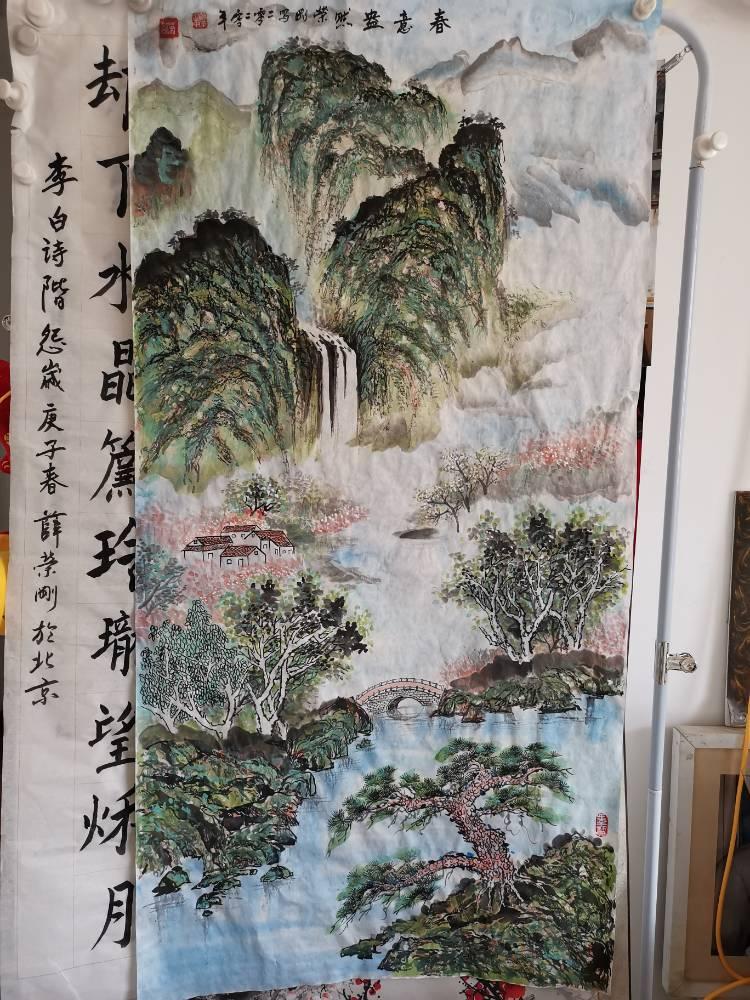 春意盎然荣刚写二零二零年
却下水晶簾玲瓏望秌月
李白诗階怨歲庚子春薛荣刚於北京